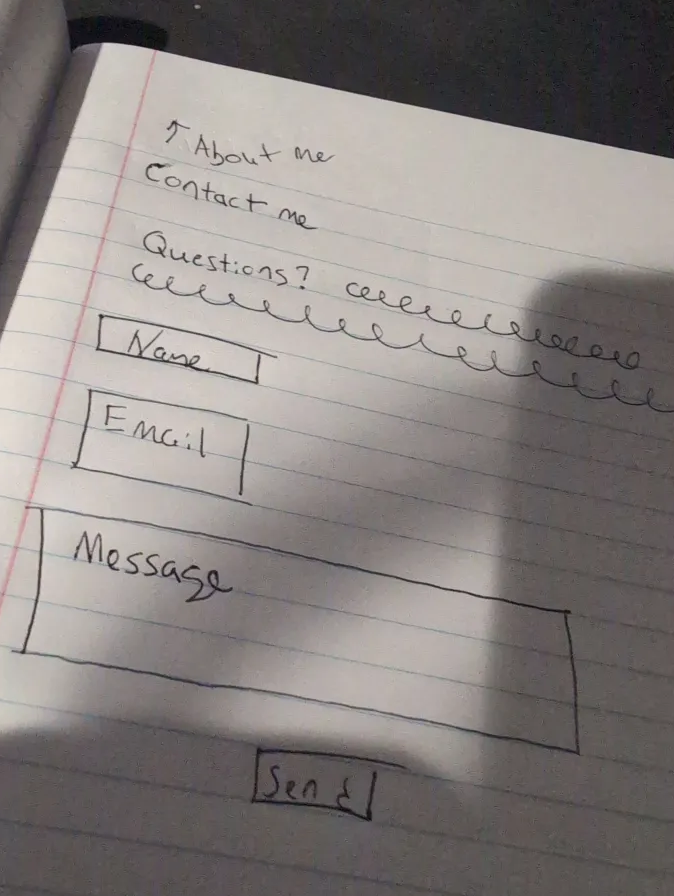 ↑ About me
Contact me
Questions?
Name
Email
Message
Send